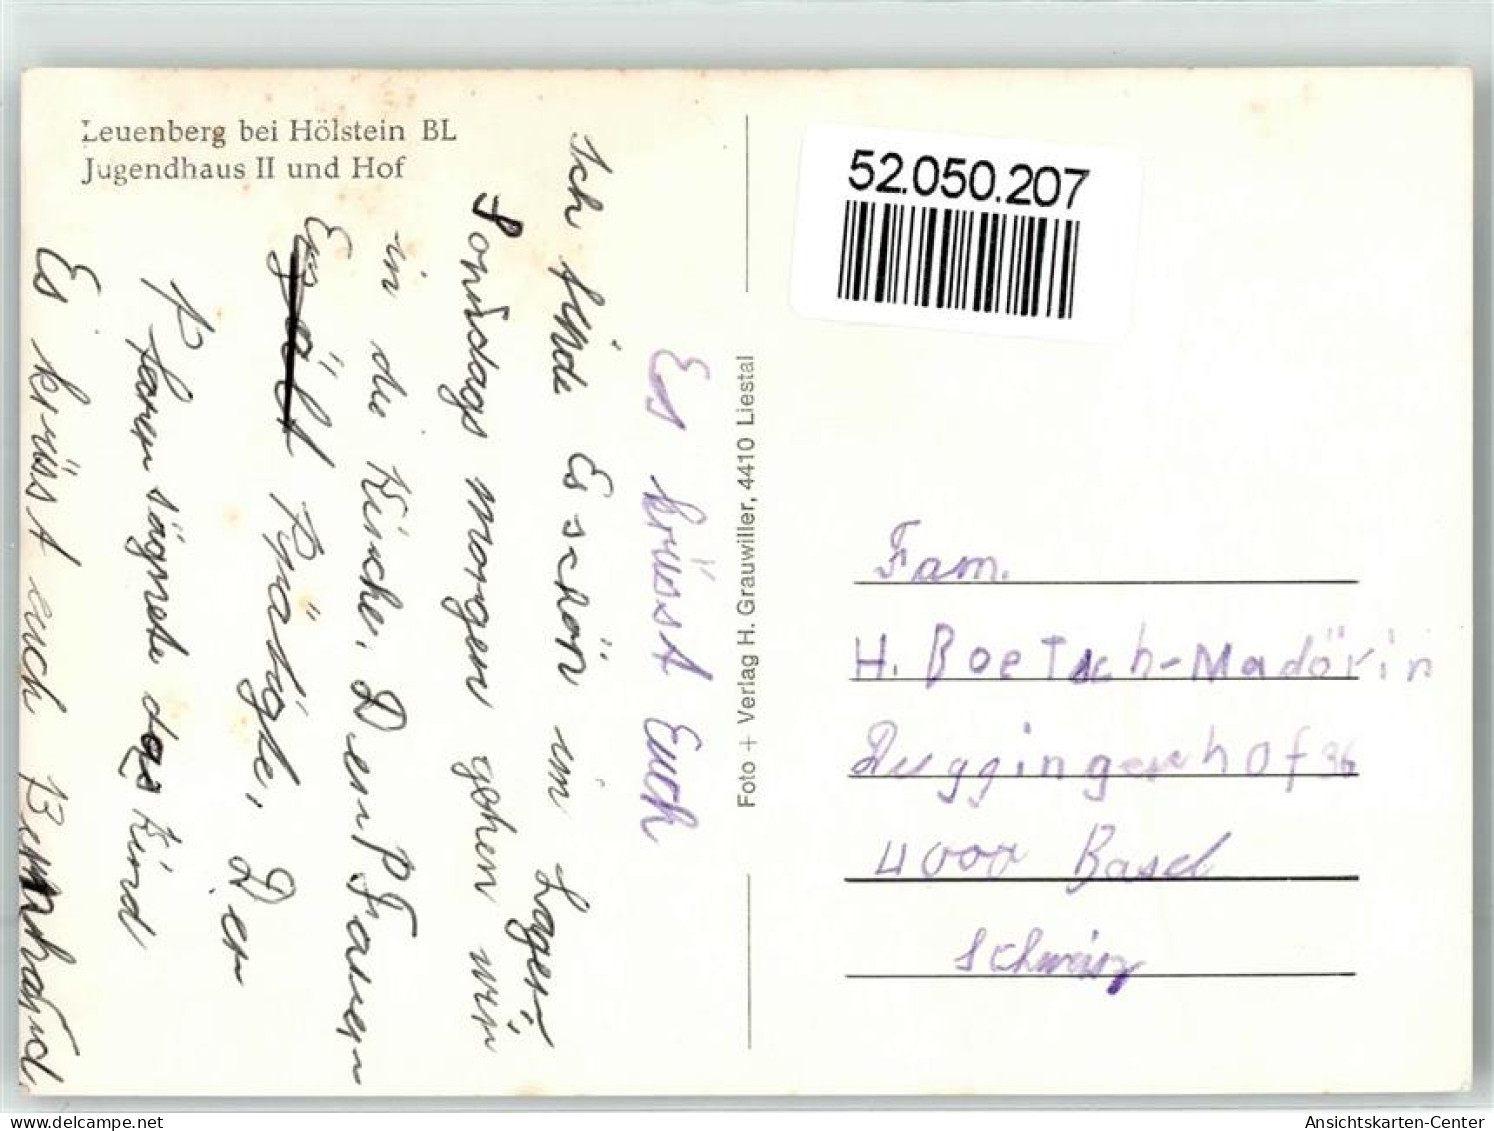 Leuenberg bei Hölstein BL
Jugendhaus II und Hof
52.050.207
Es krüsst Euch
Ich finde Es schön im Lager.
Sonndags morgen gehen wir
in die Kirche. Der Pfarer
Präsigte. Der
Pfarer sägnete das Kind
Es krüsst euch Bernhard
Foto + Verlag H. Grauwiller, 4410 Liestal
Fam.
H. Boetsch-Madörin
Duggingerhof 36
4000 Basel
Schweiz
delcampe.net
Ansichtskarten-Center